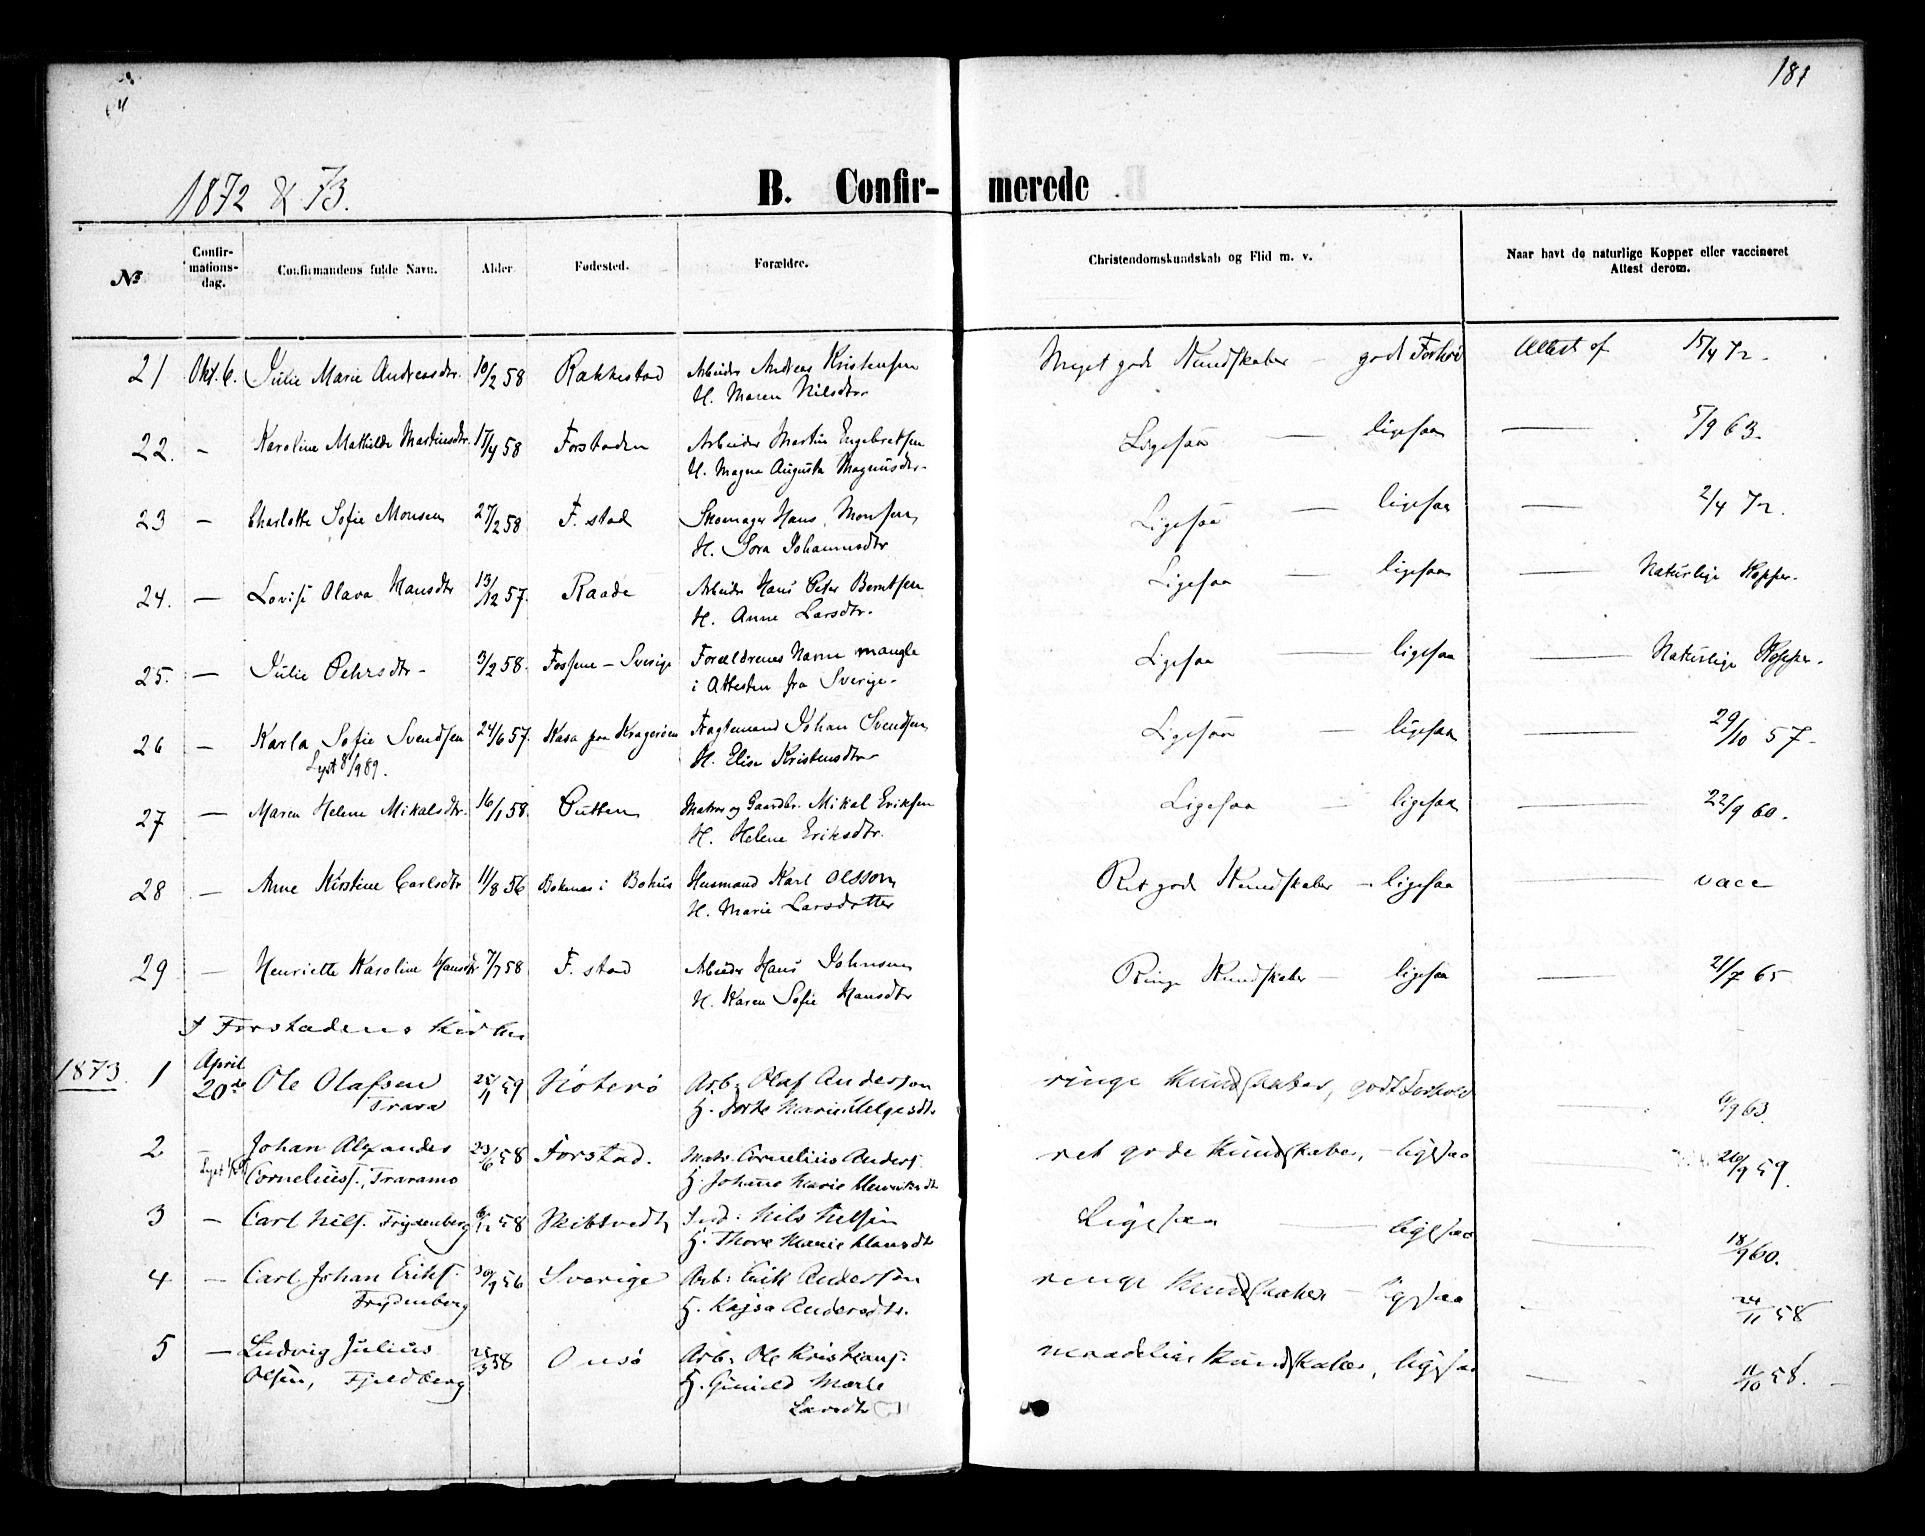 181
1872 & 73.
B. Confir- merede
№ Confir-mations-dag. Confirmandens fulde Navn. Alder Fødested. Forældre. Christendomskundskab og Flid m. v. Naar havt de naturlige Kopper eller vaccineret Attest derom.
21 Okt. 6. Julie Marie Andreasdtr. 10/2 58 Rakkestad Arbeider Andreas Kristensen Meget gode Kundskaber – godt Forhold Attest af 15/4 72.
H. Maren Nilsdtr
22. – Karoline Mathilde Martinsdtr. 17/4 58 Forstaden Arbeider Martin Engebretsen Ligesaa — ligesaa — 5/9 63.
H. Magna Augusta Magnusdtr.
23 – Charlotte Sofie Monsen 27/2 58 F. stad Skomager Hans Monsen Ligesaa — ligesaa — 2/4 72.
H. Sora Johannesdtr
24. – Lovise Olava Hansdtr 13/12 57. Raade Arbeider Hans Peter Berntsen Ligesaa — ligesaa — Naturlige Kopper.
H. Anne Larsdtr.
25. – Julie Pehrsdtr – 3/2 58. Fossene – Sverige Forældrenes Navne mangle Ligesaa — ligesaa — Naturlige Kopper.
i Attesten fra Sverige.
26 – Karla Sofie Svendsen 24/6 57. Kasa paa Kragerøen Fragtemand Johan Svendsen Ligesaa — ligesaa — 29/10 57 –
Lyst 8/9 89. H. Elise Kristensdtr
27 – Maren Helene Mikalsdtr. 16/1 58. Putten Matros og Gaardbr. Mikal Eriksen Ligesaa — ligesaa — 22/9 60.
H. Helene Eriksdtr.
28 – Anne Kirstine Carlsdtr 11/8 56 Bokenas i Bohus Husmand Karl Olsson Ret gode Kundskaber – ligesaa — vacc
H. Marie Larsdatter
29 – Henriette Karoline Hansdtr 7/7 58 F. stad Arbeider Hans Johnsen Ringe Kundskaber – ligesaa — 21/7 65
H. Karen Sofie Hansdtr
I Forstadens Kirke
1873. 1 April 20de Ole Olafsen 22/1 59 Nøterø Arb: Olaf Anderson ringe Kundskaber, godt Forhold — 6/9 63.
Trara H. Marie Helgesdtr
2 – Johan Alexander 23/6 58 Forstad. Matr. Cornelius Anders. ret gode Kundskaber, – ligesaa 26/9 59.
Lyst Corneliuss., Traramo H. Johanne Marie
3 – Carl Nils. Frydenberg 58 Skibtvedt Ind: Nils Nilsen Ligesaa ligesaa — 18/9 60.
H. Thore Marie Hansdtr
4 – Carl Johan Eriks. 30/9 56 Sverige Arb: Erik Anderson ringe Kundskaber – ligesaa — 24/11 58
Frydenberg H. Kajsa Andersdtr.
5 – Ludvig Julius 58 Onsø Arb: Ole Kristians. Kundskaber, ligesaa — 11/10 58.
Olsen, Fjeldberg H. Gunild Marie
Larsdtr